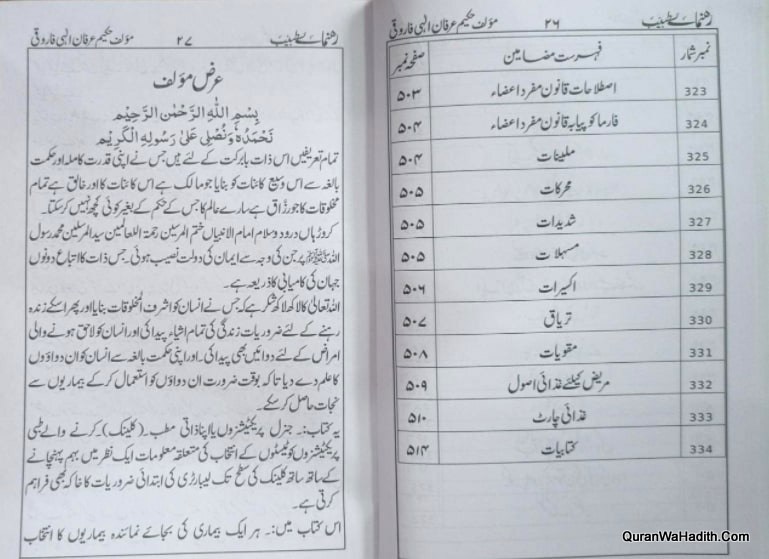 رہنمائے طبیب ۲۶ مؤلف حکیم عرفان الٰہی فاروقی
نمبر شمار فہرست مضامین صفحہ نمبر
323 اصطلاحات قانون مفرد اعضاء ۵۰۳
324 فارماکوپیا بہ قانون مفرد اعضاء ۵۰۴
325 ملینات ۵۰۴
326 محرکات ۵۰۵
327 شدیدات ۵۰۵
328 مسہلات ۵۰۵
329 اکسیرات ۵۰۶
330 تریاق ۵۰۷
331 مقویات ۵۰۸
332 مریض کیلئے غذائی اصول ۵۰۹
333 غذائی چارٹ ۵۱۰
334 کتابیات ۵۱۴
رہنمائے طبیب ۲۷ مؤلف حکیم عرفان الٰہی فاروقی
عرض مؤلف
بِسْمِ اللّٰهِ الرَّحْمٰنِ الرَّحِيْمِ
نَحْمَدُهٗ وَنُصَلِّىْ عَلٰى رَسُوْلِهِ الْكَرِيْمِ
تمام تعریفیں اس ذات بابرکت کے لئے ہیں جس نے اپنی قدرت کاملہ اور حکمت
بالغہ سے اس وسیع کائنات کو بنایا جو مالک ہے اس کائنات کا اور خالق ہے تمام
مخلوقات کا جو رزّاق ہے سارے عالم کا جس کے حکم کے بغیر کوئی کچھ نہیں کر سکتا۔
کروڑہاں درود و سلام امام الانبیاں ختم المرسلین رحمۃ اللعالمین سید المرسلین محمد رسول
اللہ ﷺ پر جن کی وجہ سے ایمان کی دولت نصیب ہوئی۔ جس ذات کا اتباع دونوں
جہان کی کامیابی کا ذریعہ ہے۔
اللہ تعالیٰ کا لاکھ لاکھ شکر ہے کہ جس نے انسان کو اشرف المخلوقات بنایا اور پھر اسکے زندہ
رہنے کے لئے ضروریات زندگی کی تمام اشیاء پیدا کی اور انسان کو لاحق ہونے والی
امراض کے لئے دوائیں بھی پیدا کی۔ اور اپنی حکمت بالغہ سے انسان کو ان دواؤوں
کا علم دے دیا تاکہ بوقت ضرورت ان دواؤں کو استعمال کر کے بیماریوں سے
نجات حاصل کر سکے۔
یہ کتاب:۔ جنرل پریکٹیشنروں یا اپنا ذاتی مطب۔ (کلینک)۔ کرنے والے طبی
پریکٹیشنروں کو ٹیسٹوں کے انتخاب کی متعلقہ معلومات ایک نظر میں بہم پہنچانے
کے ساتھ ساتھ کلینک کی سطح تک لیبارٹری کی ابتدائی ضروریات کا خاکہ بھی فراہم
کرتی ہے۔
اس کتاب میں:۔ ہر ایک بیماری کی بجائے نمائندہ بیماریوں کا انتخاب
QuranWaHadith.Com